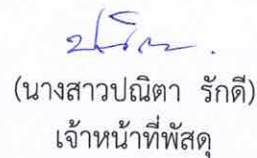 (นางสาวปณิตา รักดี)
เจ้าหน้าที่พัสดุ